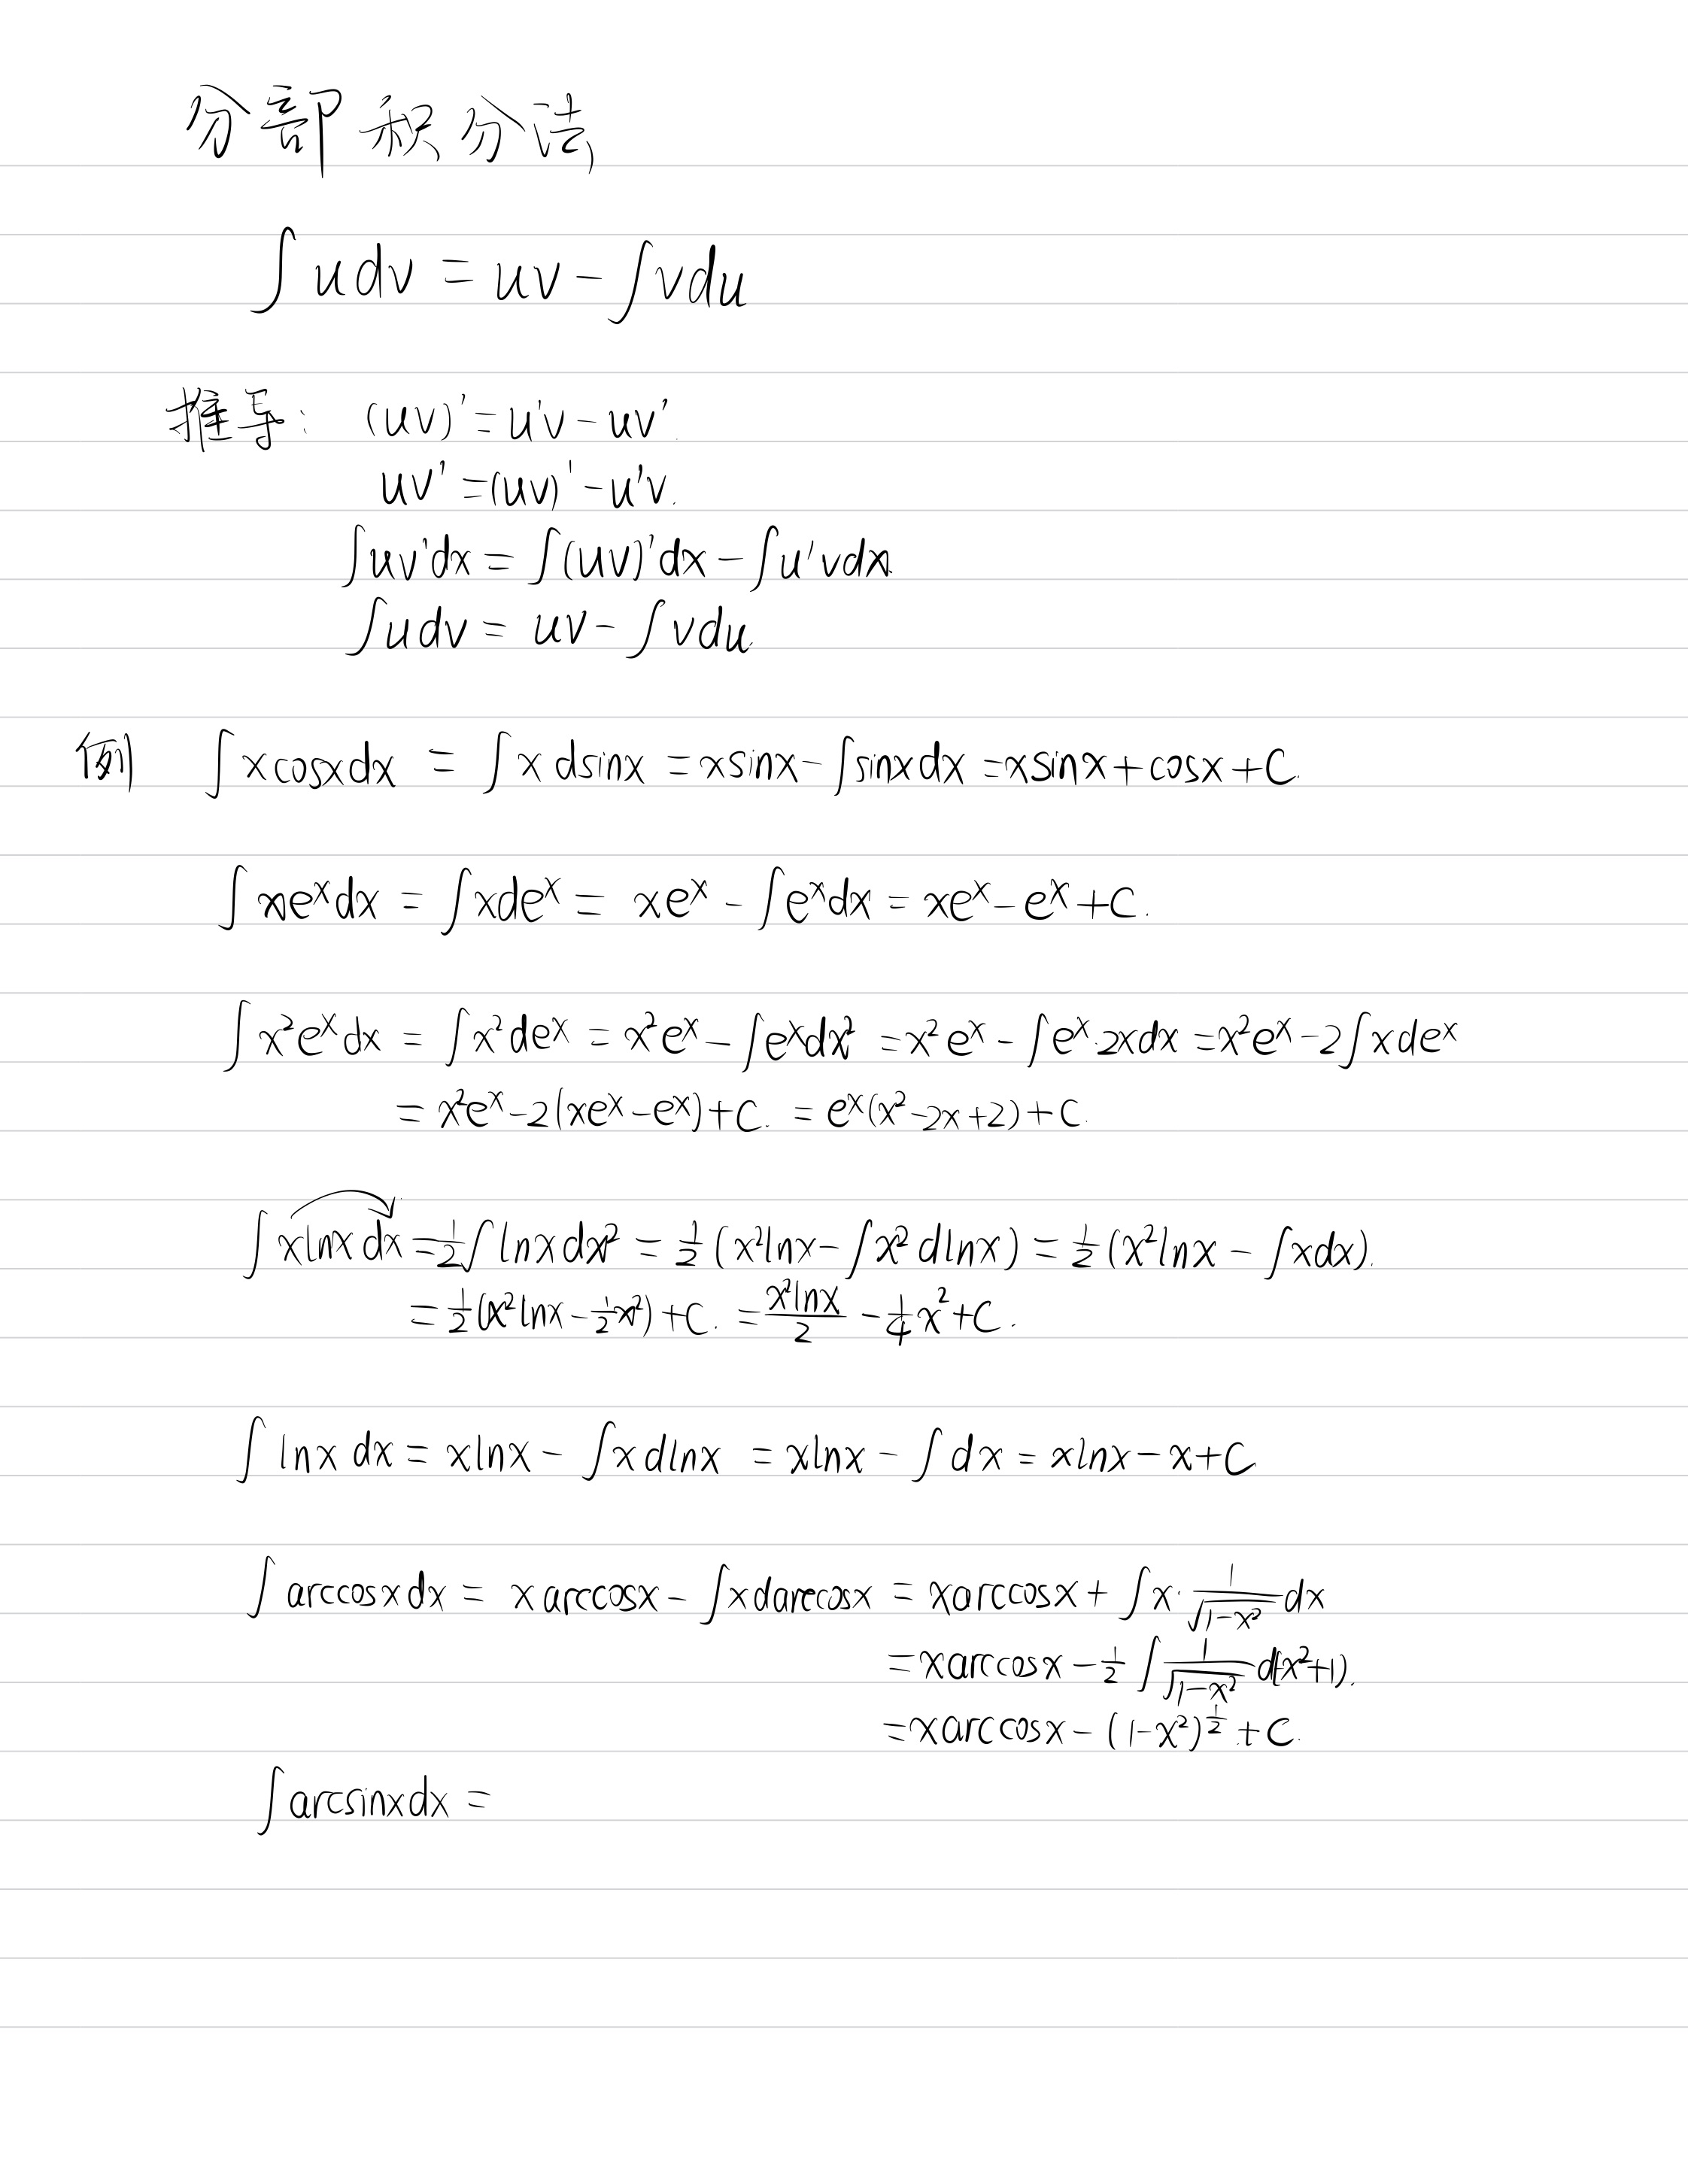 分部积分法
∫udv = uv - ∫vdu
推导: (uv)' = u'v - uv'.
uv' = (uv)' - u'v.
∫uv'dx = ∫(uv)'dx - ∫u'vdx.
∫udv = uv - ∫vdu.
例 ∫xcosxdx = ∫x dsinx = xsinx - ∫sinxdx = xsinx + cosx + C.
∫xeˣdx = ∫xdeˣ = xeˣ - ∫eˣdx = xeˣ - eˣ + C.
∫x²eˣdx = ∫x²deˣ = x²eˣ - ∫eˣdx² = x²eˣ - ∫eˣ·2xdx = x²eˣ - 2∫xdeˣ
= x²eˣ - 2(xeˣ - eˣ) + C. = eˣ(x² - 2x + 2) + C.
∫xlnxdx = 1/2∫lnxdx² = 1/2(x²lnx - ∫x²dlnx) = 1/2(x²lnx - ∫xdx).
= 1/2(x²lnx - 1/2x²) + C. = x²lnx/2 - 1/4x² + C.
∫lnxdx = xlnx - ∫xdlnx = xlnx - ∫dx = xlnx - x + C
∫arccosxdx = xarccosx - ∫xdarccosx = xarccosx + ∫x·1/√(1-x²)dx
= xarccosx - 1/2∫1/√(1-x²)d(-x²+1).
= xarccosx - (1-x²)^(1/2) + C.
∫arcsinxdx =